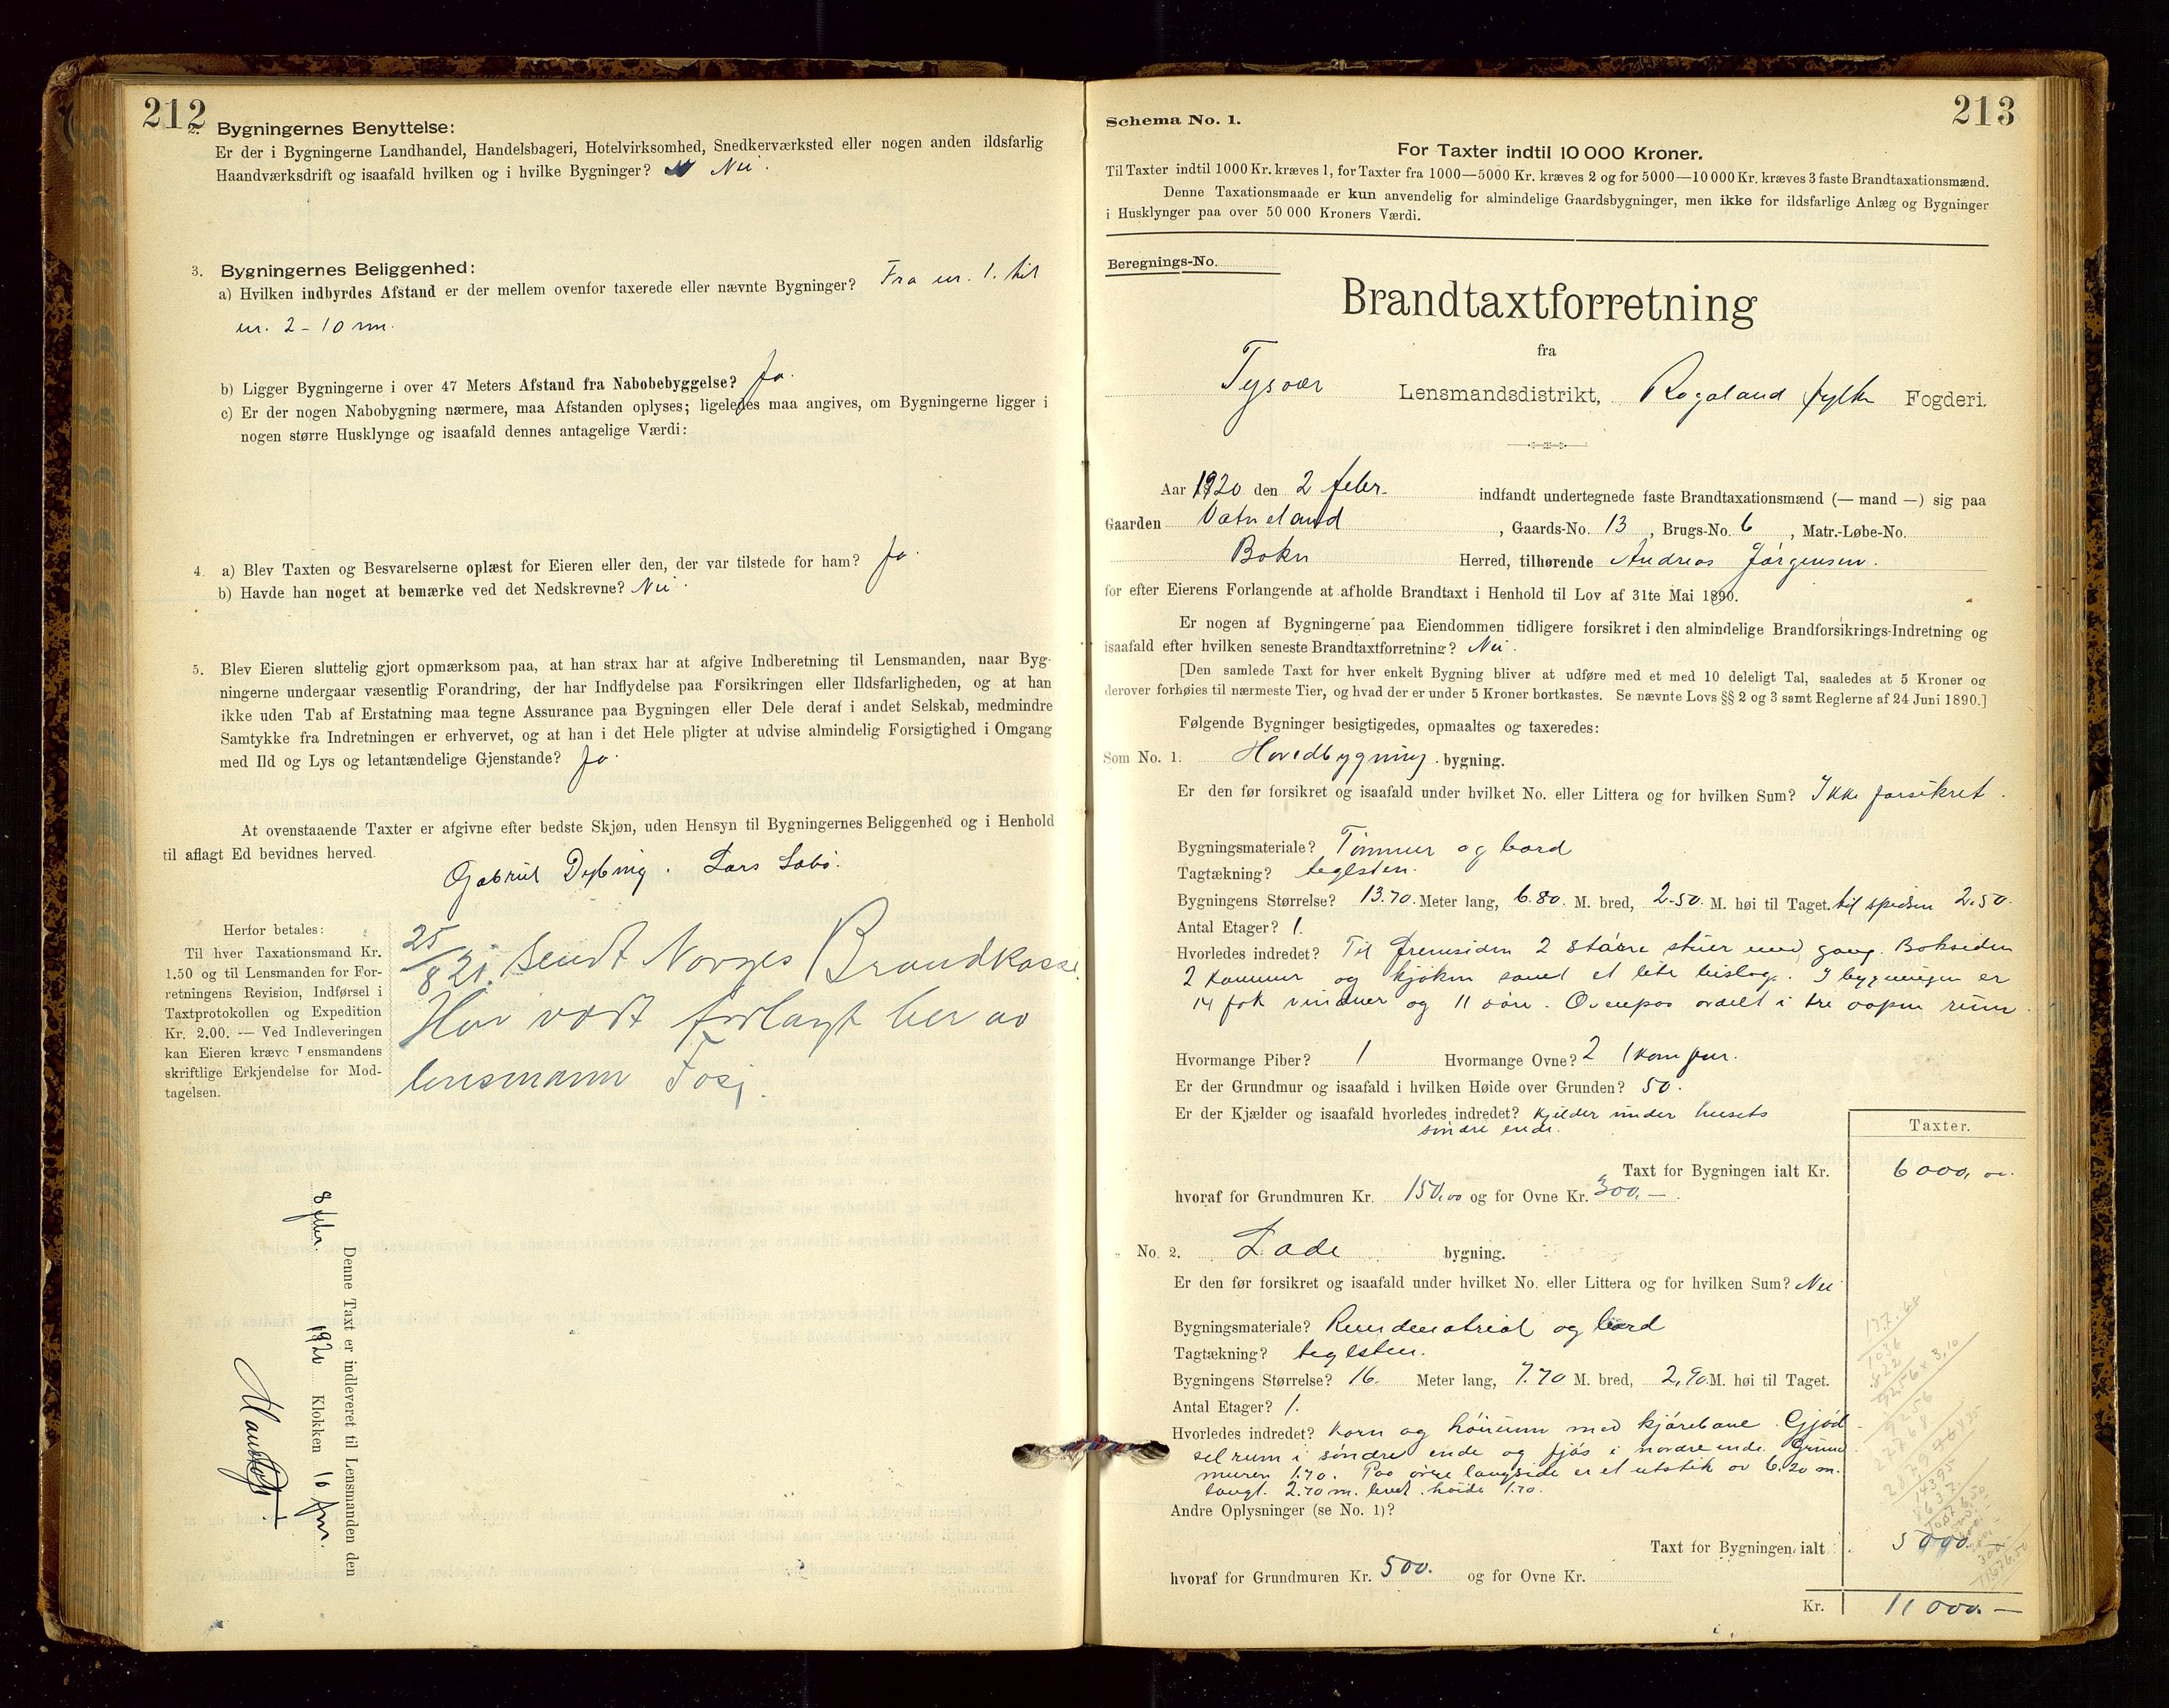 212
2. Bygningernes Benyttelse:
Er der i Bygningerne Landhandel, Handelsbageri, Hotelvirksomhed, Snedkerværksted eller nogen anden ildsfarlig
Haandværksdrift og isaafald hvilken og i hvilke Bygninger? Nei.
3. Bygningernes Beliggenhed:
a) Hvilken indbyrdes Afstand er der mellem ovenfor taxerede eller nævnte Bygninger? Fra nr. 1. til
nr. 2 - 10 m.
b) Ligger Bygningerne i over 47 Meters Afstand fra Nabobebyggelse? Ja.
c) Er der nogen Nabobygning nærmere, maa Afstanden oplyses; ligeledes maa angives, om Bygningerne ligger i
nogen større Husklynge og isaafald dennes antagelige Værdi:
4. a) Blev Taxten og Besvarelserne oplæst for Eieren eller den, der var tilstede for ham? Ja.
b) Havde han noget at bemærke ved det Nedskrevne? Nei.
5. Blev Eieren sluttelig gjort opmærksom paa, at han strax har at afgive Indberetning til Lensmanden, naar Byg-
ningerne undergaar væsentlig Forandring, der har Indflydelse paa Forsikringen eller Ildsfarligheden, og at han
ikke uden Tab af Erstatning maa tegne Assurance paa Bygningen eller Dele deraf i andet Selskab, medmindre
Samtykke fra Indretningen er erhvervet, og at han i det Hele pligter at udvise almindelig Forsigtighed i Omgang
med Ild og Lys og letantændelige Gjenstande? Ja.
At ovenstaaende Taxter er afgivne efter bedste Skjøn, uden Hensyn til Bygningernes Beliggenhed og i Henhold
til aflagt Ed bevidnes herved.
Gabriel Dybing. Lars Søbø.
Herfor betales:
Til hver Taxationsmand Kr.
1.50 og til Lensmanden for For-
retningens Revision, Indførsel i
Taxtprotokollen og Expedition
Kr. 2.00. — Ved Indleveringen
kan Eieren kræve Lensmandens
skriftlige Erkjendelse for Mod-
tagelsen.
25/8 21. Sendt Norges Brandkasse
Har vært forlangt her av
lensmann
Denne Taxt er indleveret til Lensmanden den
8 febr. 1920 Klokken 10 fm.
213
Schema No. 1.
For Taxter indtil 10 000 Kroner.
Til Taxter indtil 1000 Kr. kræves 1, for Taxter fra 1000—5000 Kr. kræves 2 og for 5000—10 000 Kr. kræves 3 faste Brandtaxationsmænd.
Denne Taxationsmaade er kun anvendelig for almindelige Gaardsbygninger, men ikke for ildsfarlige Anlæg og Bygninger
i Husklynger paa over 50 000 Kroners Værdi.
Beregnings-No.
Brandtaxtforretning
fra
Tysvær Lensmandsdistrikt, Rogaland fylke Fogderi.
Aar 1920 den 2 febr. indfandt undertegnede faste Brandtaxationsmænd (— mand —) sig paa
Gaarden Vatneland, Gaards-No. 13, Brugs-No. 6, Matr.-Løbe-No.
Bokn Herred, tilhørende Andreas Jørgensen.
for efter Eierens Forlangende at afholde Brandtaxt i Henhold til Lov af 31te Mai 1890.
Er nogen af Bygningerne paa Eiendommen tidligere forsikret i den almindelige Brandforsikrings-Indretning og
isaafald efter hvilken seneste Brandtaxtforretning? Nei.
[Den samlede Taxt for hver enkelt Bygning bliver at udføre med et med 10 deleligt Tal, saaledes at 5 Kroner og
derover forhøies til nærmeste Tier, og hvad der er under 5 Kroner bortkastes. Se nævnte Lovs §§ 2 og 3 samt Reglerne af 24 Juni 1890.]
Følgende Bygninger besigtigedes, opmaaltes og taxeredes:
Som No. 1. Hovedbygning. bygning.
Er den før forsikret og isaafald under hvilket No. eller Littera og for hvilken Sum? Ikke forsikret.
Bygningsmateriale? Tømmer og bord
Tagtækning? teglsten.
Bygningens Størrelse? 13.70. Meter lang, 6.80. M. bred, 2.50. M. høi til Taget. til spidsen 2.50.
Antal Etager? 1.
Hvorledes indredet? Til fremsiden 2 større stuer med gang. Baksiden
2 kammer og kjøken samt et lite bislag. I bygningen er
14 fok vinduer og 11 døre. Ovenpaa avdelt i tre aapne rum.
Hvormange Piber? 1 Hvormange Ovne? 2 1 komfur.
Er der Grundmur og isaafald i hvilken Høide over Grunden? 50.
Er der Kjælder og isaafald hvorledes indredet? Kjelder under husets
søndre ende.
Taxter.
Taxt for Bygningen ialt Kr. 6000, oo.
hvoraf for Grundmuren Kr. 150,00 og for Ovne Kr. 300,—
No. 2. Lade bygning.
Er den før forsikret og isaafald under hvilket No. eller Littera og for hvilken Sum? Nei
Bygningsmateriale? og bord
Tagtækning? teglsten.
Bygningens Størrelse? 16. Meter lang, 7.70 M. bred, 2,90 M. høi til Taget.
Antal Etager? 1.
Hvorledes indredet? Korn og høirum med kjørebane. Gjød-
selrum i søndre ende og fjøs i nordre ende. Grund
muren 1.70. Paa øvre langside er et utstik av 6.20 m.
langt. 2.70 m. bredt. høide 1.70.
Andre Oplysninger (se No. 1)?
Taxt for Bygningen ialt 5000.
hvoraf for Grundmuren Kr. 500. og for Ovne Kr.
Kr. 11000.—